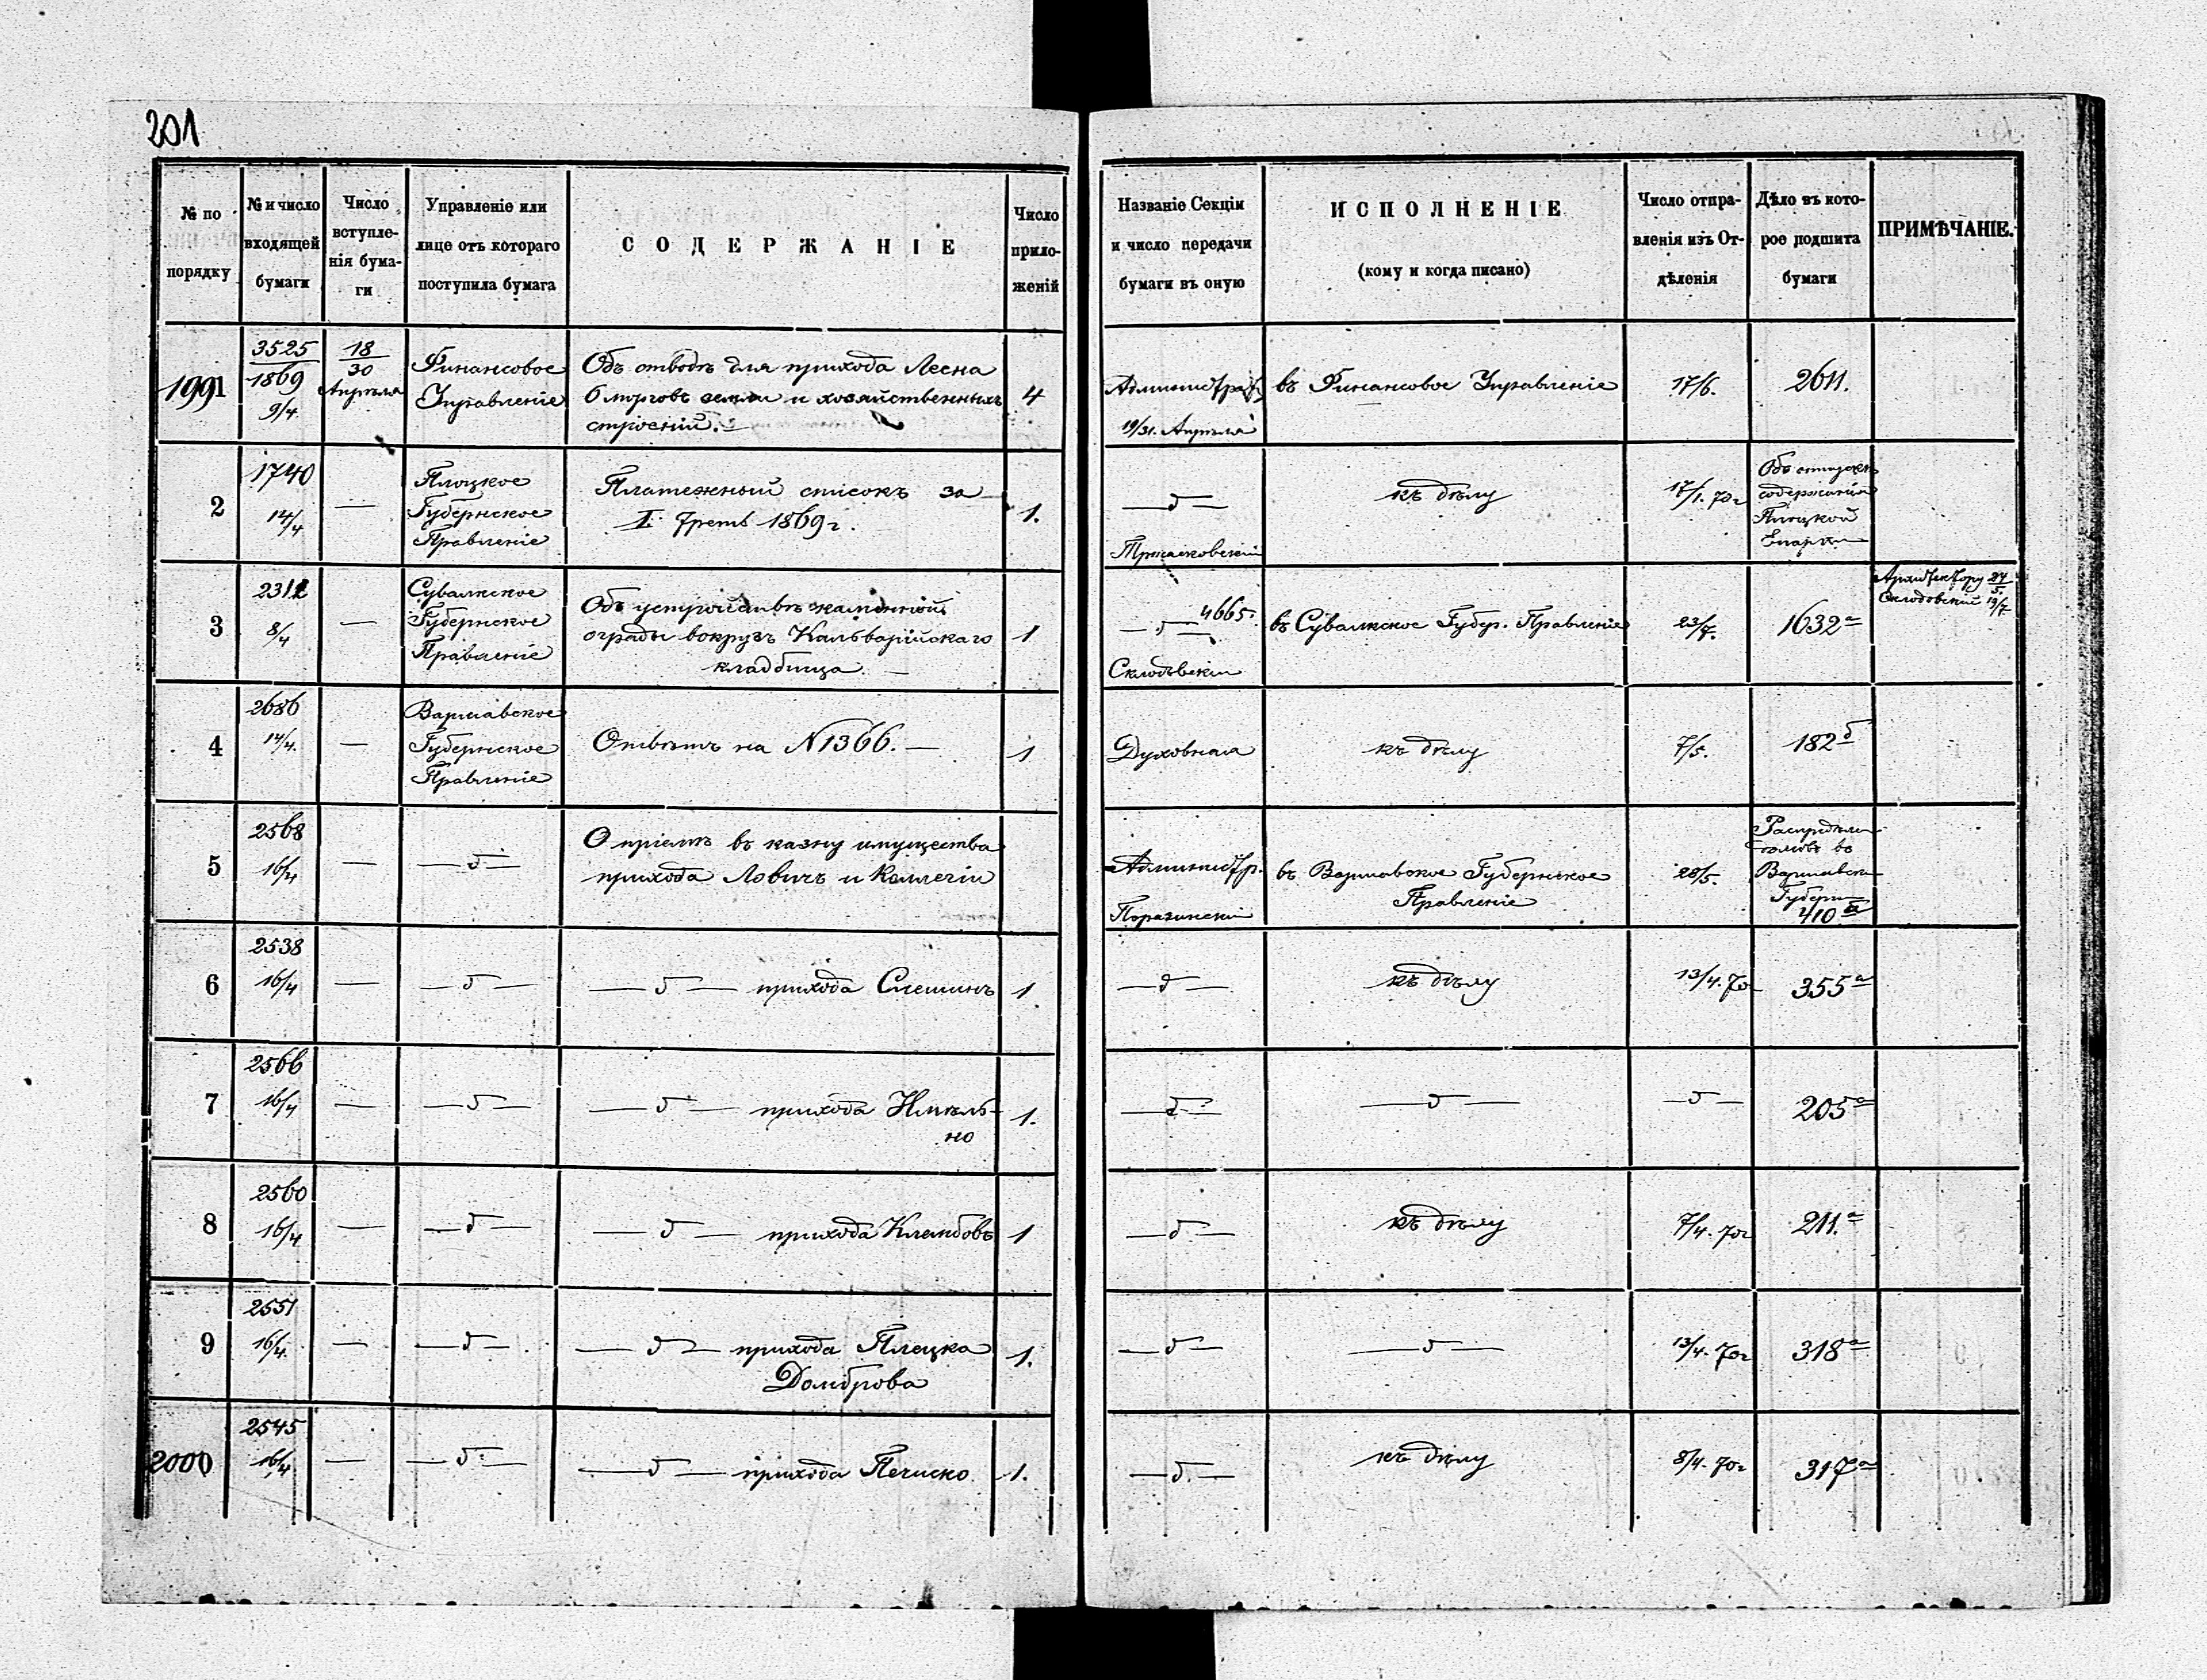 201
№ по порядку
№ и число входящей бумаги
Число вступле-нія бума-ги
Управленіе или лице отъ котораго поступила бумага
СОДЕРЖАНІЕ
Число прило-женій
Названіе Секціи и число передачи бумаги въ оную
ИСПОЛНЕНІЕ
(кому и когда писано)
Число отпра-вленія изъ От-дѣленія
Дѣло въ кото-рое подшита бумаги
ПРИМѢЧАНІЕ.
1991
3525
1869
9/4
18
30
Апрѣля
Финансовое
Управленіе
Объ отводѣ для прихода Лесна
6 морговъ земли и хозяйственныхъ
строеній.
4
Администрат.
19/31. Апрѣля
въ Финансовое Управленіе
17/6.
2611.
2
1740
14/4
—
Плоцкое
Губернское
Правленіе
Платежный списокъ за
I. треть 1869 г.
1.
— д —
къ дѣлу
17/1. 70 г
Объ отпускѣ
содержанія
Плоцкой
Епархіи
3
8/4
—
Сувалкское
Губернское
Правленіе
Объ устройствѣ каменной
ограды вокругъ Кальварійскаго
кладбища. —
1
— д —
4665.
Склодовскій
въ Сувалкское Губер. Правленіе
23/7.
1632 а
Архитектору 24/5.
Склодовскій 19/7
4
2686
14/4.
—
Варшавское
Губернское
Правленіе
Отвѣтъ на N 1366. —
1
Духовная
къ дѣлу
7/5.
182 б
5
2568
16/4
—
— д —
О пріемѣ въ казну имущества
прихода Ловичъ и Коллегіи
Администр.
въ Варшавское Губернское
Правленіе
28/5.
въ
Варшавск
Губерн
410 а
6
2538
16/4
—
— д —
— д — прихода Слешинъ
1
— д —
къ дѣлу
13/4. 70
355 а
7
2566
16/4
—
— д —
— д — прихода Нмѣль-
но
1.
— д —
— д —
— д —
205 а
8
2560
16/4
—
— д —
— д — прихода Клембовъ
1
— д —
къ дѣлу
7/4. 70 г
211. а
9
2551
16/4.
—
— д —
— д — прихода Плецка
Домброва
1.
— д —
— д —
13/4. 70 г
318 а
2000
2545
16/4
—
— д —
— д — прихода Печиско.
1.
— д. —
къ дѣлу
8/4. 70 г
317 а